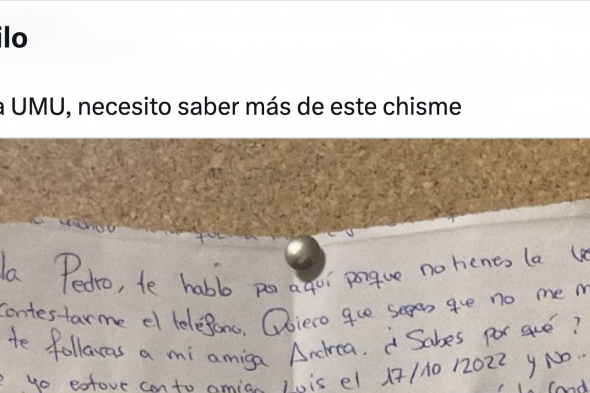 ilo
a UMU, necesito saber más de este chisme
la Pedro, te hablo por aquí porque no tienes la
contestarme el teléfono. Quiero que sepas que no me m
te follaras a mi amiga Andrea. ¿Sabes por qué?
yo estove con to amigo Luis el 17/10/2022 y No..